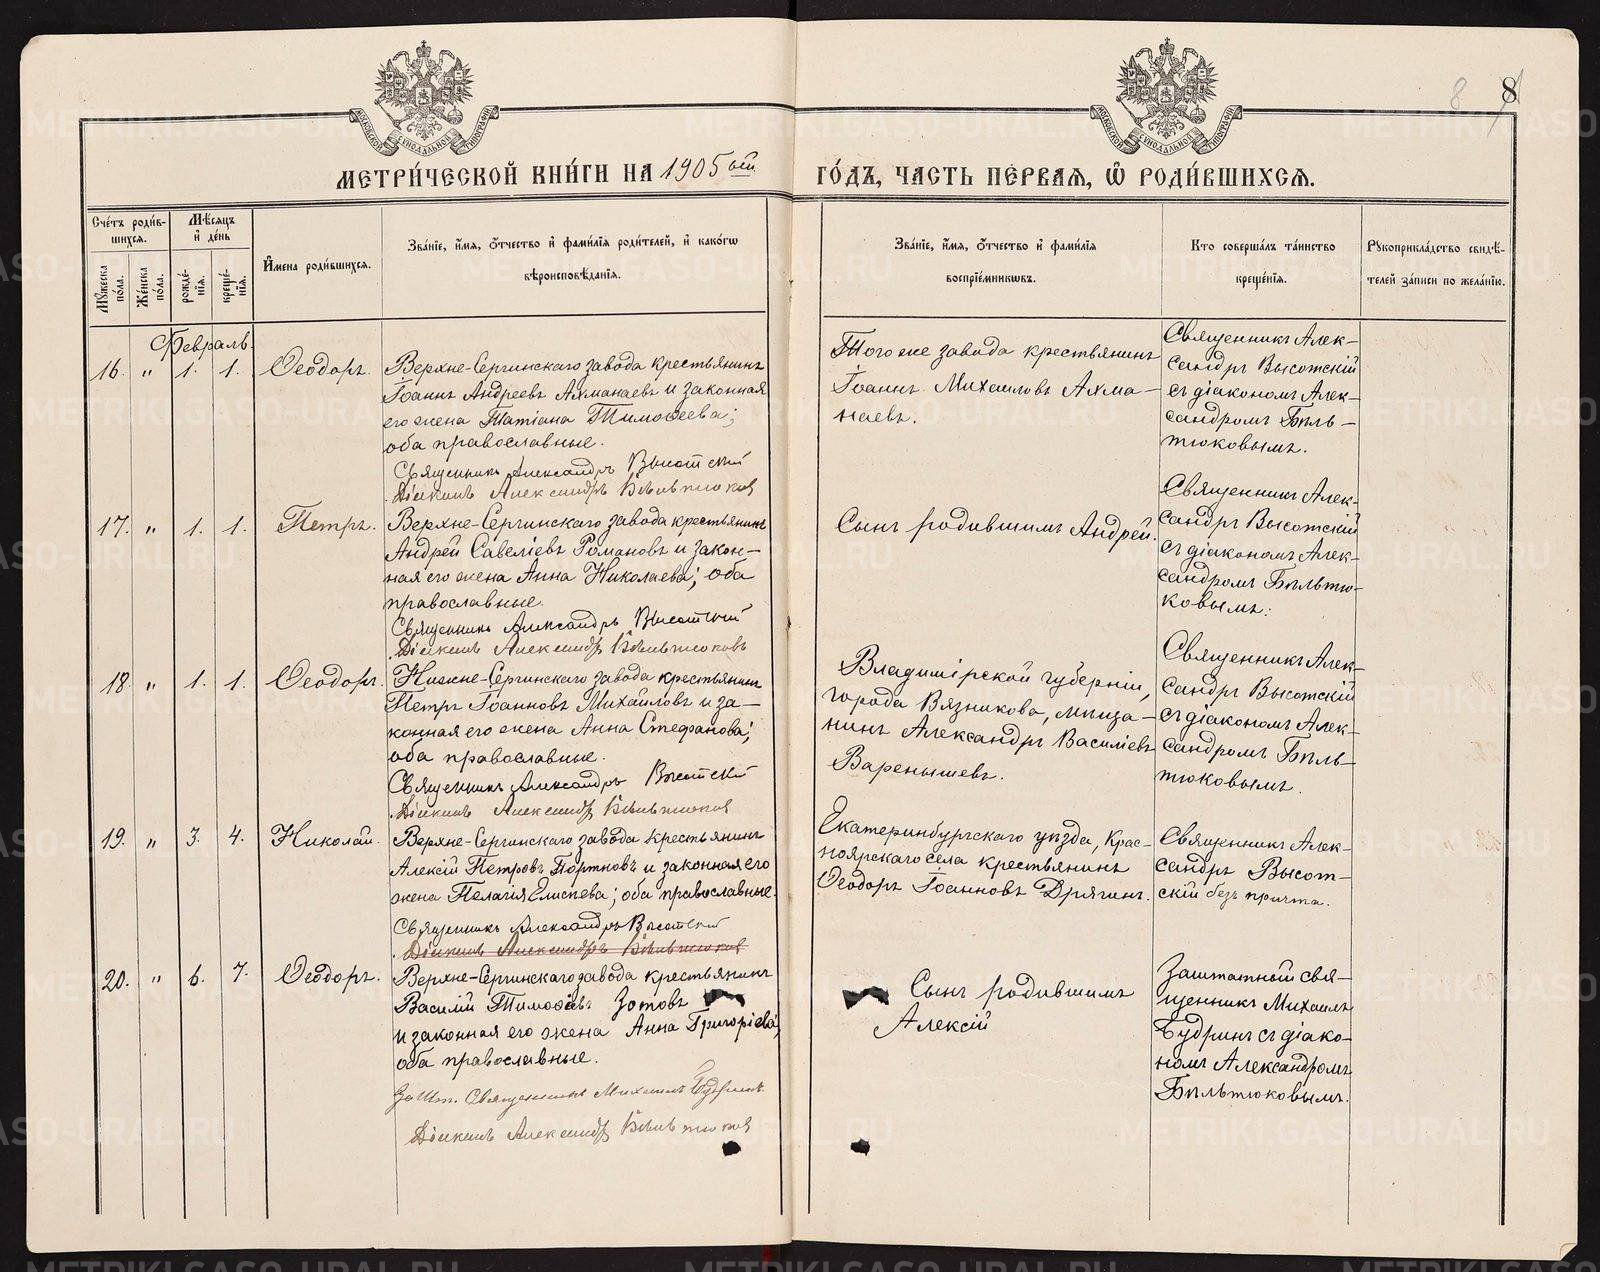 8 8
МЕТРИ́ЧЕСКОЙ КНИ́ГИ НА 1905ый ГО́ДЪ, ЧАСТЬ ПЕ́РВАЯ, Ѡ РОДИ́ВШИХСЯ.
Сче́тъ роди́в-
шихся.
Мꙋ́жеска по́ла.
Же́нска по́ла.
Мѣ́сяцъ и де́нь
рожде́-
нія.
креще́-
нія.
И҆мена роди́вшихся.
Зва́ніе, и҆мя, о҆тчество и҆ фами́лія роди́телей, и҆ како́гѡ
вѣроисповѣ́данія.
Зва́ніе, и҆мя, о҆тчество и҆ фами́лія
воспріе́мникѡвъ.
Кто соверша́лъ та́инство
креще́нія.
Рꙋкоприкла́дство свидѣ́-
телей за́писи по жела́нію.
Февраль.
16. " 1. 1. Ѳеодоръ.
Верхне-Сергинскаго завода крестьянинъ
Іоаннъ Андреевъ Ахманаевъ и законная
его жена Татіана Тимоѳеева;
оба православные.
Священникъ Александръ Высотскій
Діаконъ Александръ Бѣльтюковъ
Того же завода крестьянинъ
Іоаннъ Михаиловъ Ахма-
наевъ.
Священникъ Алек-
сандръ Высотскій
съ діакономъ Алек-
сандромъ Бѣль-
тюковымъ.
17. " 1. 1. Петръ.
Верхне-Сергинскаго завода крестьянинъ
Андрей Савеліевъ Романовъ и закон-
ная его жена Анна Николаева; оба
православные.
Священникъ Александръ Высотскій
Діаконъ Александръ Бѣльтюковъ
Сынъ родившимъ Андрей.
Священникъ Алек-
сандръ Высотскій
съ діакономъ Алек-
сандромъ Бѣльтю-
ковымъ.
18. " 1. 1. Ѳеодоръ.
Нижне-Сергинскаго завода крестьянинъ
Петръ Іоанновъ Михайловъ и за-
конная его жена Анна Стефанова;
оба православные.
Священникъ Александръ Высотскій
Діаконъ Александръ Бѣльтюковъ
Владимірской губерніи,
города Вязникова, мѣща-
нинъ Александръ Василіевъ
Варенышевъ.
Священникъ Алек-
сандръ Высотскій
съ діакономъ Алек-
сандромъ Бѣль-
тюковымъ.
19. " 3. 4. Николай.
Верхне-Сергинскаго завода крестьянинъ
Алексій Петровъ Портновъ и законная его
жена Пелагія Елисѣева; оба православные.
Священникъ Александръ Высотскій
Діаконъ Александръ Бѣльтюковъ
Екатеринбургскаго уѣзда, Крас-
ноярскаго села крестьянинъ
Ѳеодоръ Іоанновъ Дрягинъ.
Священникъ Алек-
сандръ Высот-
скій безъ причта.
20. " 6. 7. Ѳеодоръ.
Верхне-Сергинскаго завода крестьянинъ
Василій Тимоѳеевъ Зотовъ
и законная его жена Анна Григоріева;
оба православные.
Зашт. Священникъ Михаилъ Будринъ
Діаконъ Александръ Бѣльтюковъ
Сынъ родившимъ
Алексій
Заштатный свя-
щенникъ Михаилъ
Будринъ съ діако-
номъ Александромъ
Бѣльтюковымъ.